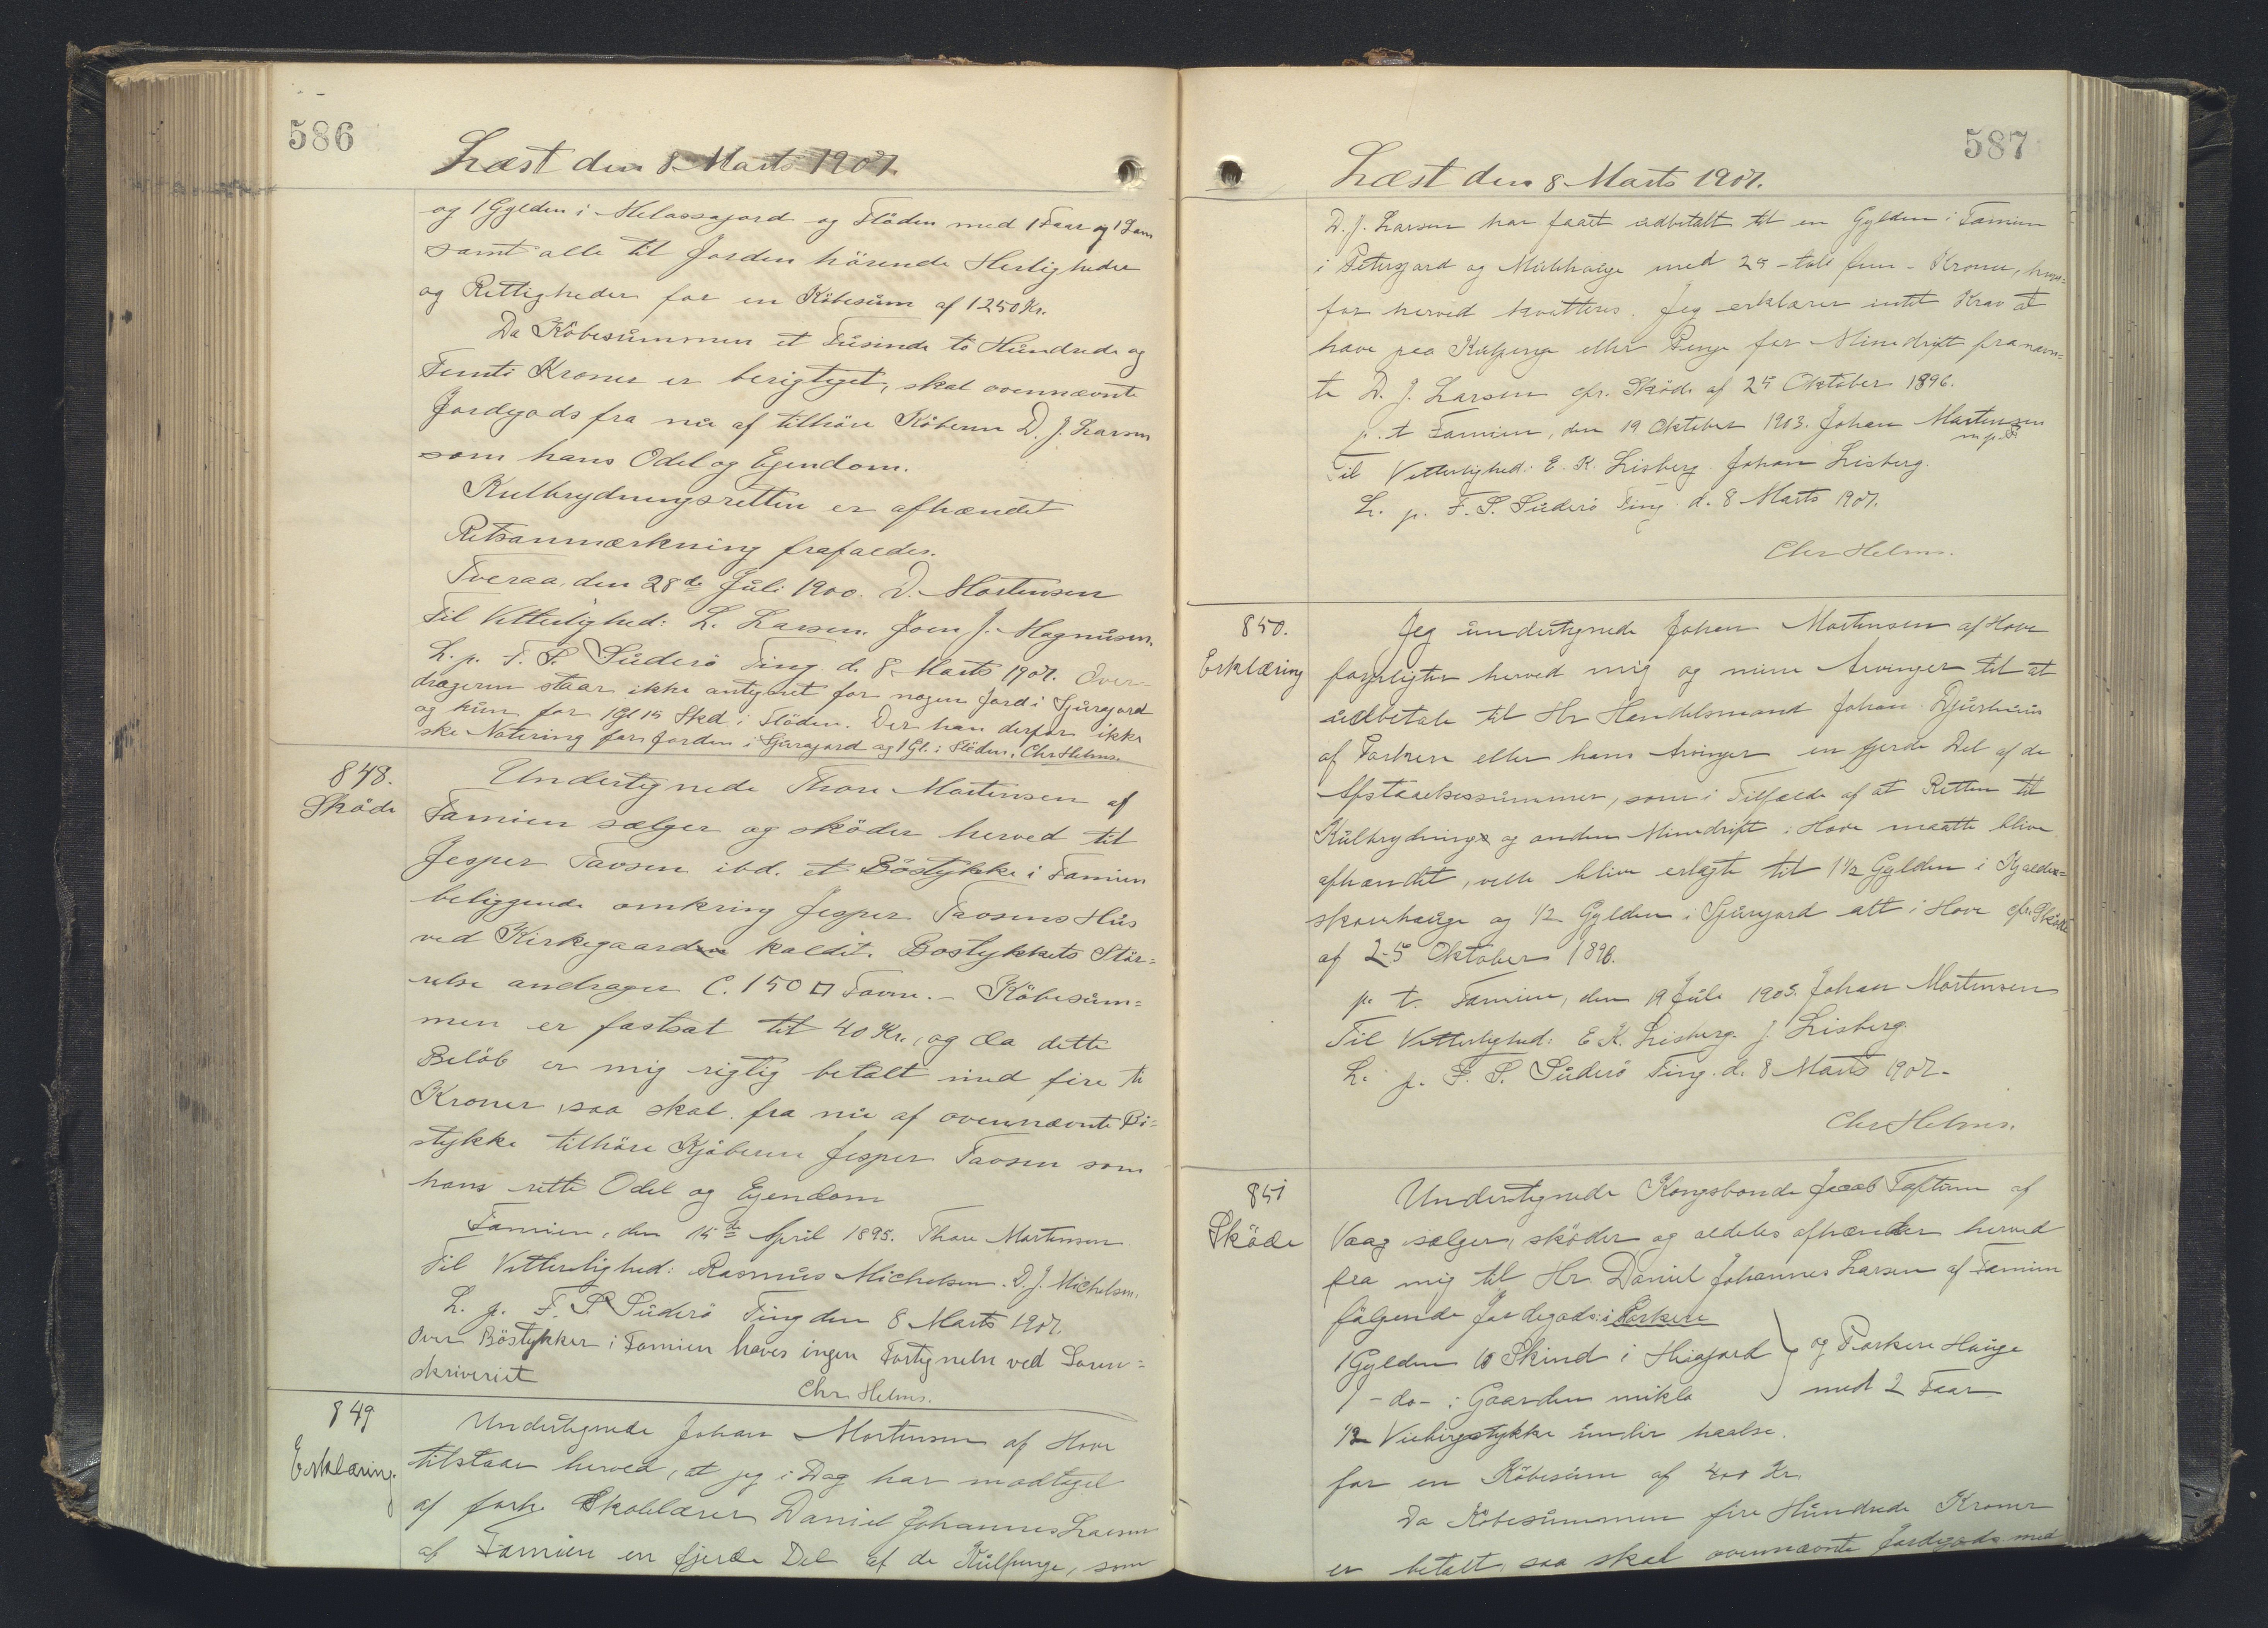 586
Læst den 8 Marts 1907.
og 1 Gylden i Melassajord og Flöden med 1 Faar og 1 Lam
samt alle til Jorden hörende Herligheder
og Rettigheder for en Köbesum af 1250 Kr.
Da Köbesummen et Tusinde to Hundrede og
Femti Kroner er berigtiget, skal ovennævnte
Jordegods fra nu af tilhöre Köberen D. J. Larsen
som hans Odel og Ejendom.
Kulbrydningsretten er afhændet
Retsanmærkning frafaldes.
Tveraa, den 28de Juli 1900. D. Mortensen
Til Vitterlighed: L. Larsen. Joen J. Magnusen.
L. p. F. S. Süderö Ting d. 8 Marts 1907. Over-
drageren staar ikke antegnet for nogen Jord i Sjurajord
og kun for 1 Gl 15 Skd i Flöden. Der kan derfor ikke
ske Notering for Jorden i Sjurajord og 1 Gl. i Flöden. Chr Helms.
848.
Sköde
Undertegnede Thore Mortensen af
Famien sælger og sköder herved til
Jesper Tavsen ibd. et Böstykke i Famien
beliggende omkring Jesper Tavsens Hus
ved Kirkegaarden kaldet. Bostykkets Stör=
relse andrager C. 150 □ Favne. - Köbesum=
men er fastsat til 40 Kr., og da dette
Belöb er mig rigtig betalt med fire ti
Kroner, saa skal fra nu af ovennævnte Bö=
stykke tilhöre Kjöberen Jesper Tavsen som
hans rette Odel og Ejendom
Famien, den 15de April 1895. Thore Mortensen
Til Vitterlighed: Rasmus Michelsen. D. J. Michelsen.
L. p. F. S. Süderö Ting den 8 Marts 1907.
Over Böstykker i Famien haves ingen Fortegnelse ved Soren=
skriveriet
Chr. Helms.
849
Erklæring.
Undertegnede Johan Mortensen af Hove
tilstaar herved, at jeg i Dag har modtaget
af forh. Skolelærer Daniel Johannes Larsen
af Famien en fjerde Del af de Kulpenge, som
587
Læst den 8 Marts 1907.
D. J. Larsen har faaet udbetalt til en Gylden i Famien
i Petersjord og Mülihauge med 25 - tell fem - Kroner, hvor=
for herved kvitteres. Jeg erklærer intet Krav at
have paa Kulpenge eller Penge for Minedrift fra nævn=
te D. J. Larsen cfr. Sköde af 25 Oktober 1896.
p. t. Famien, den 19 Oktober 1903. Johan Mortensen
m. p. P
Til Vitterlighed: E. K. Lisberg. Johan Lisberg.
L. p. F. S. Süderö Ting d. 8 Marts 1907.
Chr Helms.
850.
Erklæring
Jeg undertegnede Johan Mortensen af Hove
forpligter herved mig og mine Arvinger til at
udbetale til Hr Handelsmand Johan Djurhuus
af Porkere eller hans Arvinger en fjerde Del af de
Afstaaelsessummer, som i Tilfælde af at Retten til
Kulbrydning og anden Minedrift i Hove maatte blive
afhændet, ville blive erlagte til 1 1/2 Gylden i Kjalder=
skorhauge og 1/2 Gylden i Sjurajord alt i Hove cfr. Sköde
af 25 Oktober 1896.
p. t. Famien, den 19 Juli 1903. Johan Mortensen
Til Vitterlighed: E. K. Lisberg. J. Lisberg.
L. p. F. S. Süderö Ting d. 8 Marts 1907.
Chr Helms.
851
Sköde
Undertegnede Kongsbonde Jacob Toftum af
Vaag sælger, sköder og aldeles afhænder herved
fra mig til Hr. Daniel Johannes Larsen af Famien
fölgende Jordegods: i Porkere
1 Gylden 10 Skind i Heiajord } og Porkere Hauge
1 - do - i Gaarden mikla } med 2 Faar
1/2 Viebirgstykke undir haalse.
for en Köbesum af 400 Kr.
Da Köbesummen fire Hundrede Kroner
er betalt, saa skal ovennævnte Jordegods med